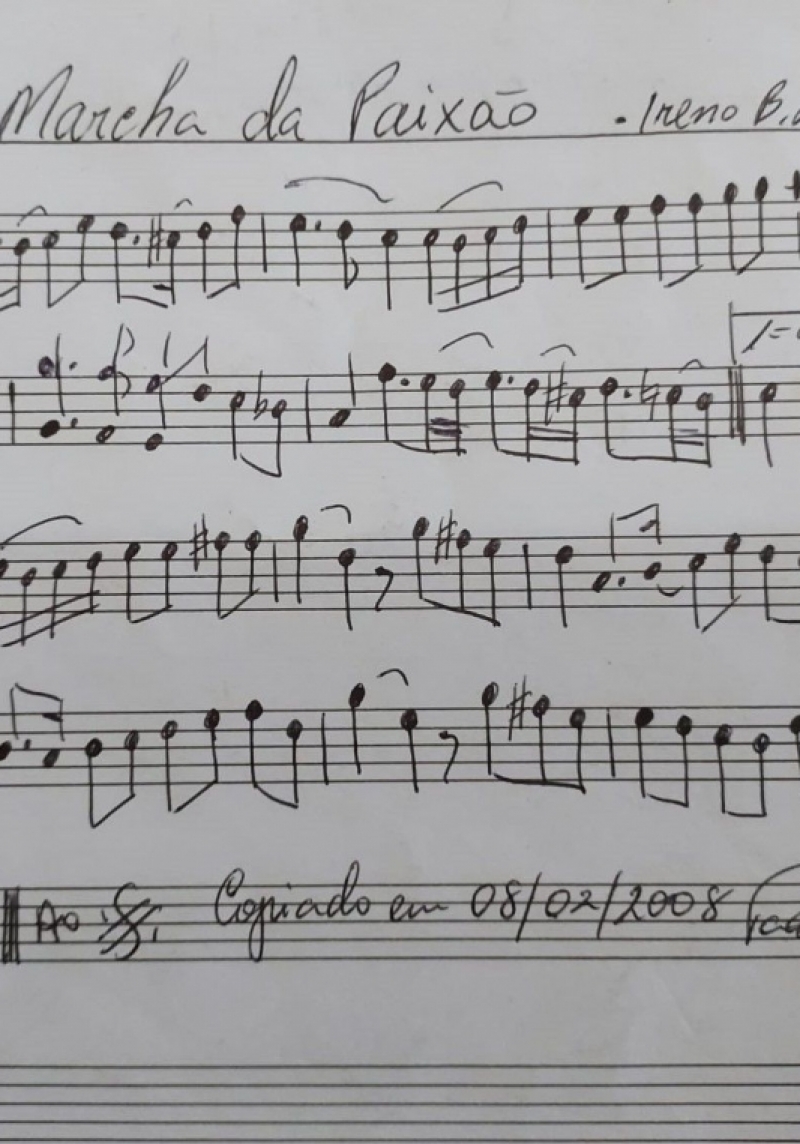 Marcha da Paixão . Ireno B.
1=
Ao Copiado em 08/02/2008